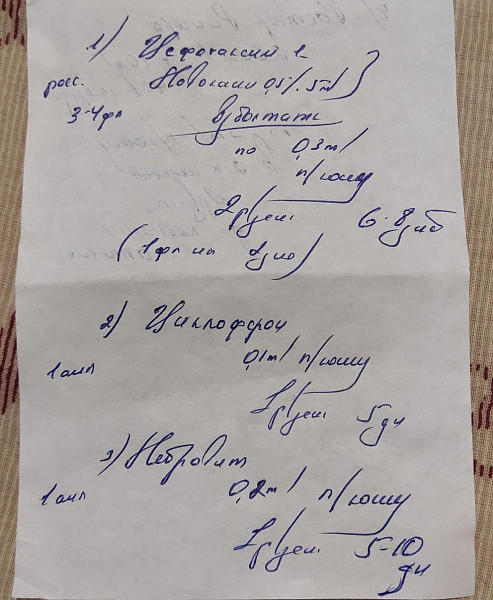 1) Цефотаксим 1
Новокаин 0,5% 5ml
росс.
3-4 фл
взболтать
по 0,3 ml
п/кожу
2 р/ден 6-8 дн
(1 фл на 2 дн)
2) Циклоферон
1 амп 0,1 ml п/кожу
1 р/ден 5 дн
3)
1 амп 0,2 ml п/кожу
1 р/ден 5-10
дн